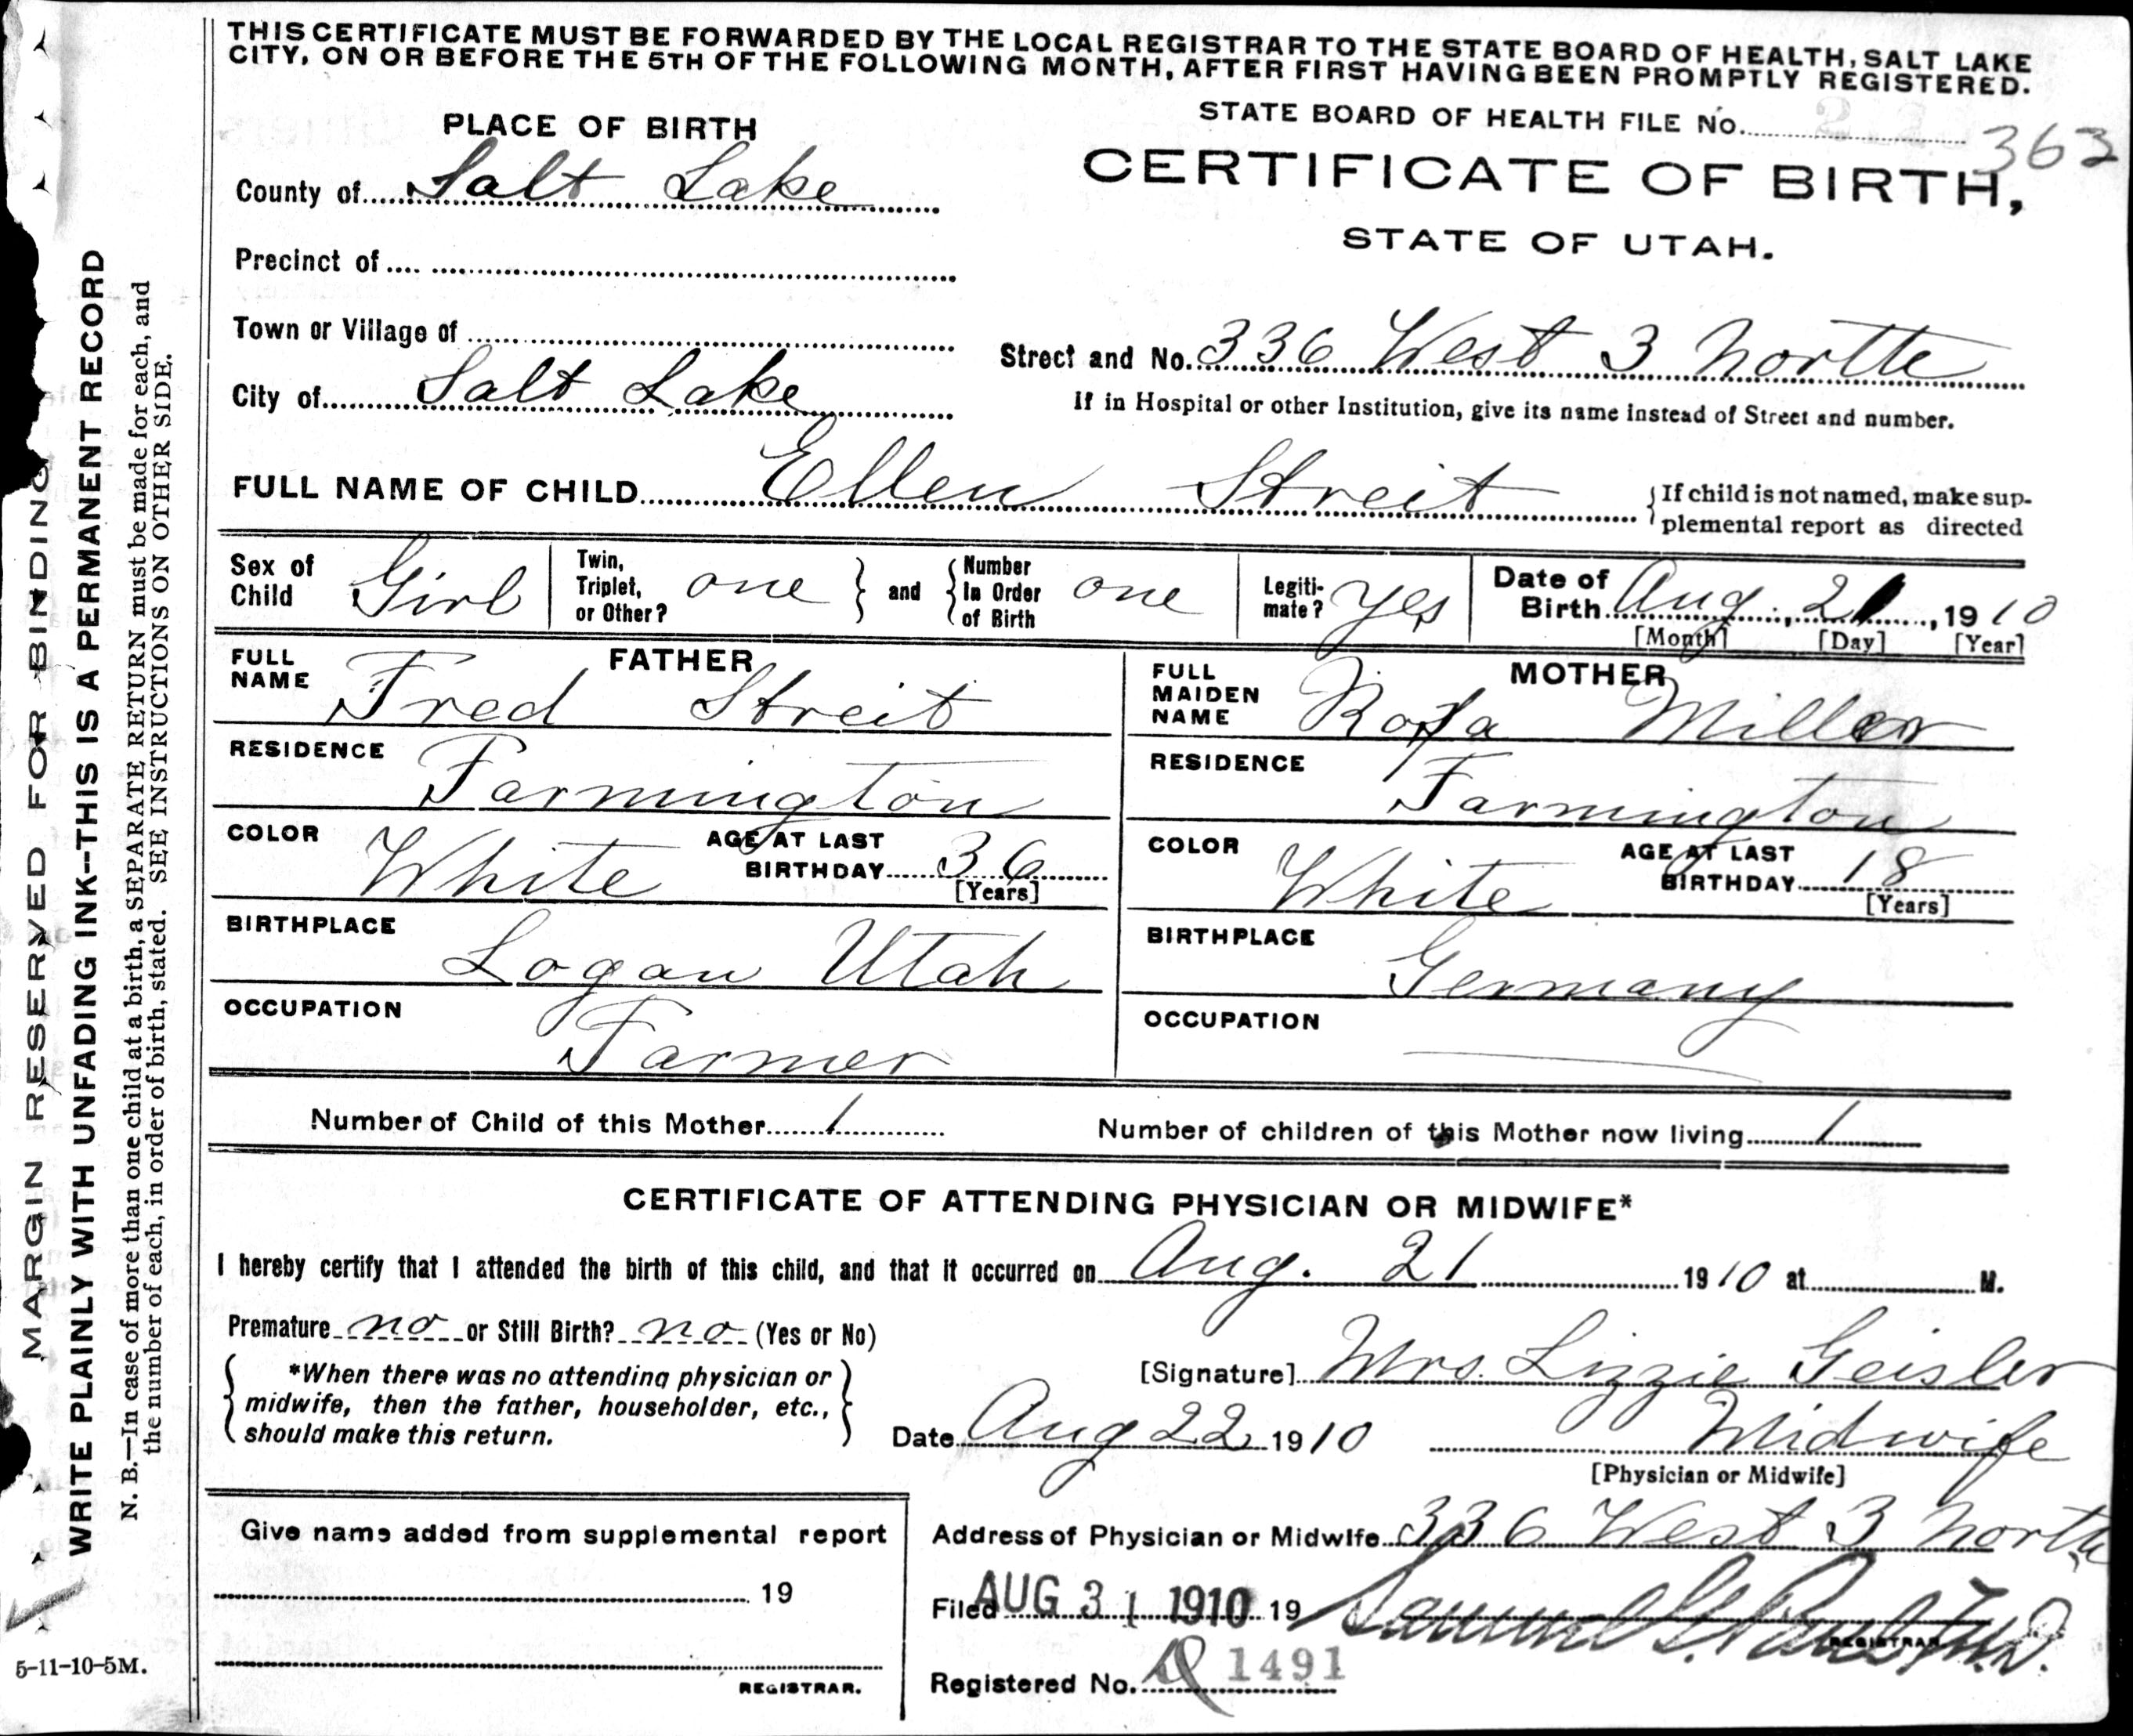 THIS CERTIFICATE MUST BE FORWARDED BY THE LOCAL REGISTRAR TO THE STATE BOARD OF HEALTH, SALT LAKE
CITY, ON OR BEFORE THE 5TH OF THE FOLLOWING MONTH, AFTER FIRST HAVING BEEN PROMPTLY REGISTERED.
STATE BOARD OF HEALTH FILE No. 363
PLACE OF BIRTH
CERTIFICATE OF BIRTH,
STATE OF UTAH.
County of Salt Lake
Precinct of
Town or Village of
Street and No. 336 West 3 North
City of Salt Lake
If in Hospital or other Institution, give its name instead of Street and number.
FULL NAME OF CHILD Ellen Streit
{If child is not named, make sup-
plemental report as directed
Sex of Child Girl
Twin, Triplet, or Other? one } and { Number In Order of Birth one
Legiti-mate? yes
Date of Birth Aug, 21, 1910
[Month] [Day] [Year]
FATHER
FULL NAME Fred Streit
RESIDENCE Farmington
COLOR White AGE AT LAST BIRTHDAY 36
[Years]
BIRTHPLACE Logan Utah
OCCUPATION Farmer
MOTHER
FULL MAIDEN NAME Rosa Miller
RESIDENCE Farmington
COLOR White AGE AT LAST BIRTHDAY 18
[Years]
BIRTHPLACE Germany
OCCUPATION
Number of Child of this Mother 1
Number of children of this Mother now living 1
CERTIFICATE OF ATTENDING PHYSICIAN OR MIDWIFE*
I hereby certify that I attended the birth of this child, and that it occurred on Aug. 21 1910 at M.
Premature no or Still Birth? no (Yes or No)
{ *When there was no attending physician or
midwife, then the father, householder, etc.,
should make this return. }
[Signature] Mrs. Lizzie Geisler
Date Aug 22 1910 Midwife
[Physician or Midwife]
Give name added from supplemental report
19
REGISTRAR.
Address of Physician or Midwife 336 West 3 North
Filed AUG 31 1910 19 Samuel G. Paul M.D.
REGISTRAR
Registered No. 1491
MARGIN RESERVED FOR BINDING
WRITE PLAINLY WITH UNFADING INK--THIS IS A PERMANENT RECORD
N. B.—In case of more than one child at a birth, a SEPARATE RETURN must be made for each, and
the number of each, in order of birth, stated. SEE INSTRUCTIONS ON OTHER SIDE.
5-11-10-5M.